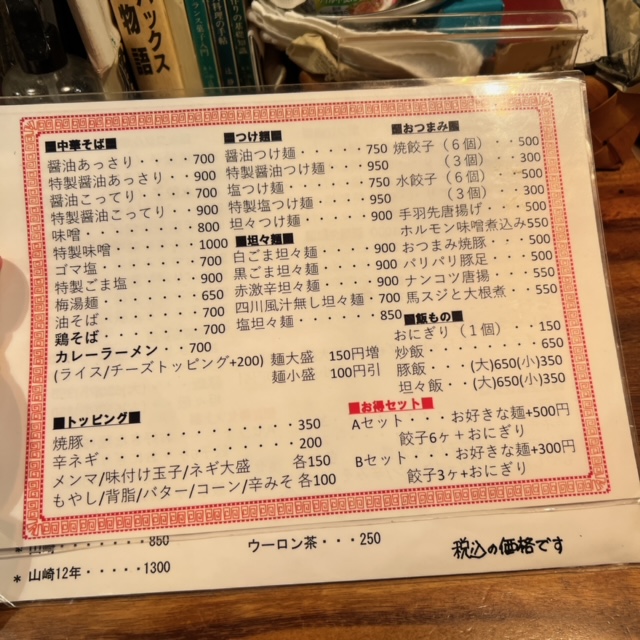 ックス
物語
■中華そば■
醤油あっさり・・・・・700
特製醤油あっさり・・・900
醤油こってり・・・・・700
特製醤油こってり・・・900
味噌・・・・・・・・・800
特製味噌・・・・・・・1000
ゴマ塩・・・・・・・・700
特製ごま塩・・・・・・900
梅湯麺・・・・・・・・650
油そば・・・・・・・・700
鶏そば・・・・・・・・700
カレーラーメン・・700
(ライス/チーズトッピング+200)
■つけ麺■
醤油つけ麺・・・・・750
特製醤油つけ麺・・・950
塩つけ麺・・・・・・750
特製塩つけ麺・・・・950
坦々つけ麺・・・・・900
■坦々麺■
白ごま坦々麺・・・・900
黒ごま坦々麺・・・・900
赤激辛坦々麺・・・・900
四川風汁無し坦々麺・700
塩坦々麺・・・・・・850
麺大盛 150円増
麺小盛 100円引
■おつまみ■
焼餃子（6個）・・・500
（3個）・・・300
水餃子（6個）・・・500
（3個）・・・300
手羽先唐揚げ・・・・500
ホルモン味噌煮込み550
おつまみ焼豚・・・・500
パリパリ豚足・・・・500
ナンコツ唐揚・・・・550
馬スジと大根煮・・・550
■飯もの■
おにぎり（1個）・・・150
炒飯・・・・・・・・・650
豚飯・・・(大)650(小)350
坦々飯・・(大)650(小)350
■トッピング■
焼豚・・・・・・・・・・・・・350
辛ネギ・・・・・・・・・・・・200
メンマ/味付け玉子/ネギ大盛 各150
もやし/背脂/バター/コーン/辛みそ 各100
■お得セット■
Aセット・・・お好きな麺+500円
餃子6ヶ+おにぎり
Bセット・・・お好きな麺+300円
餃子3ヶ+おにぎり
* 山崎・・・・・・・850
* 山崎12年・・・・1300
ウーロン茶・・・250
税込の価格です